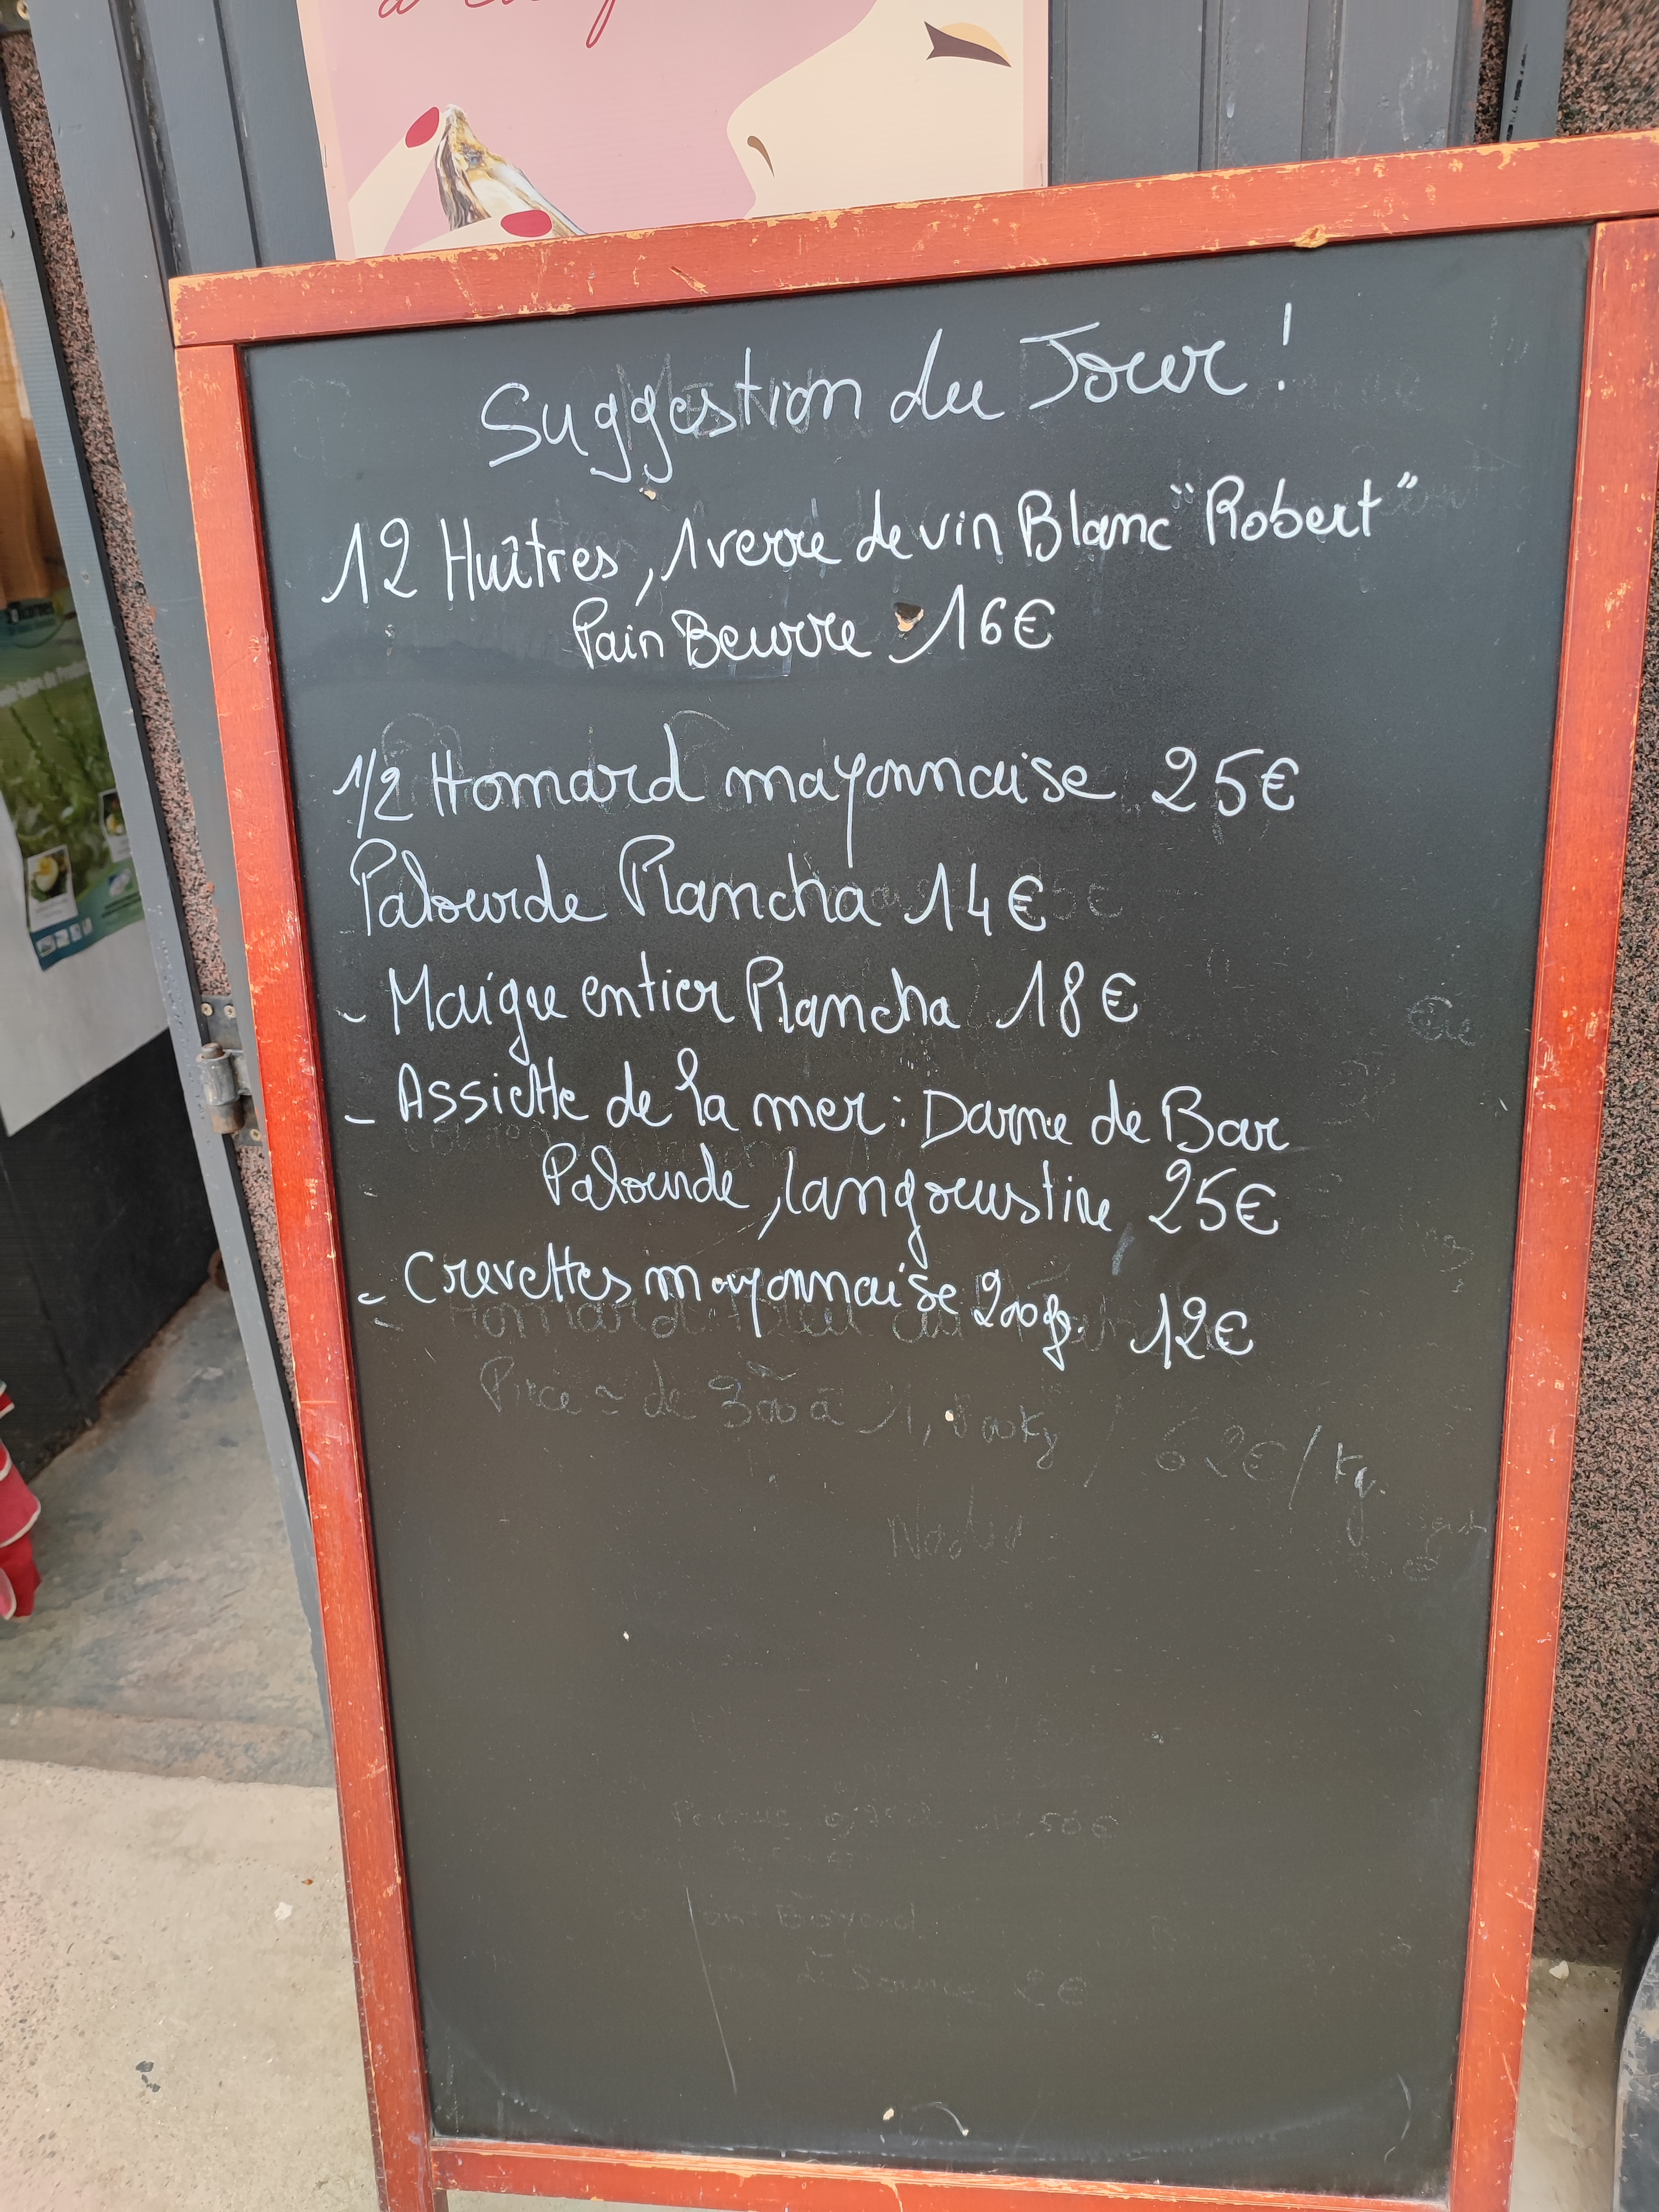 Suggestion du Jour !
12 Huîtres, 1 verre de vin Blanc "Robert"
Pain Beurre 16€
1/2 Homard mayonnaise 25€
Palourde Plancha 14€
- Maigre entier Plancha 18€
- Assiette de la mer : Darne de Bar
Palourde, langoustine 25€
- Crevettes mayonnaise 200g. 12€
62€/kg